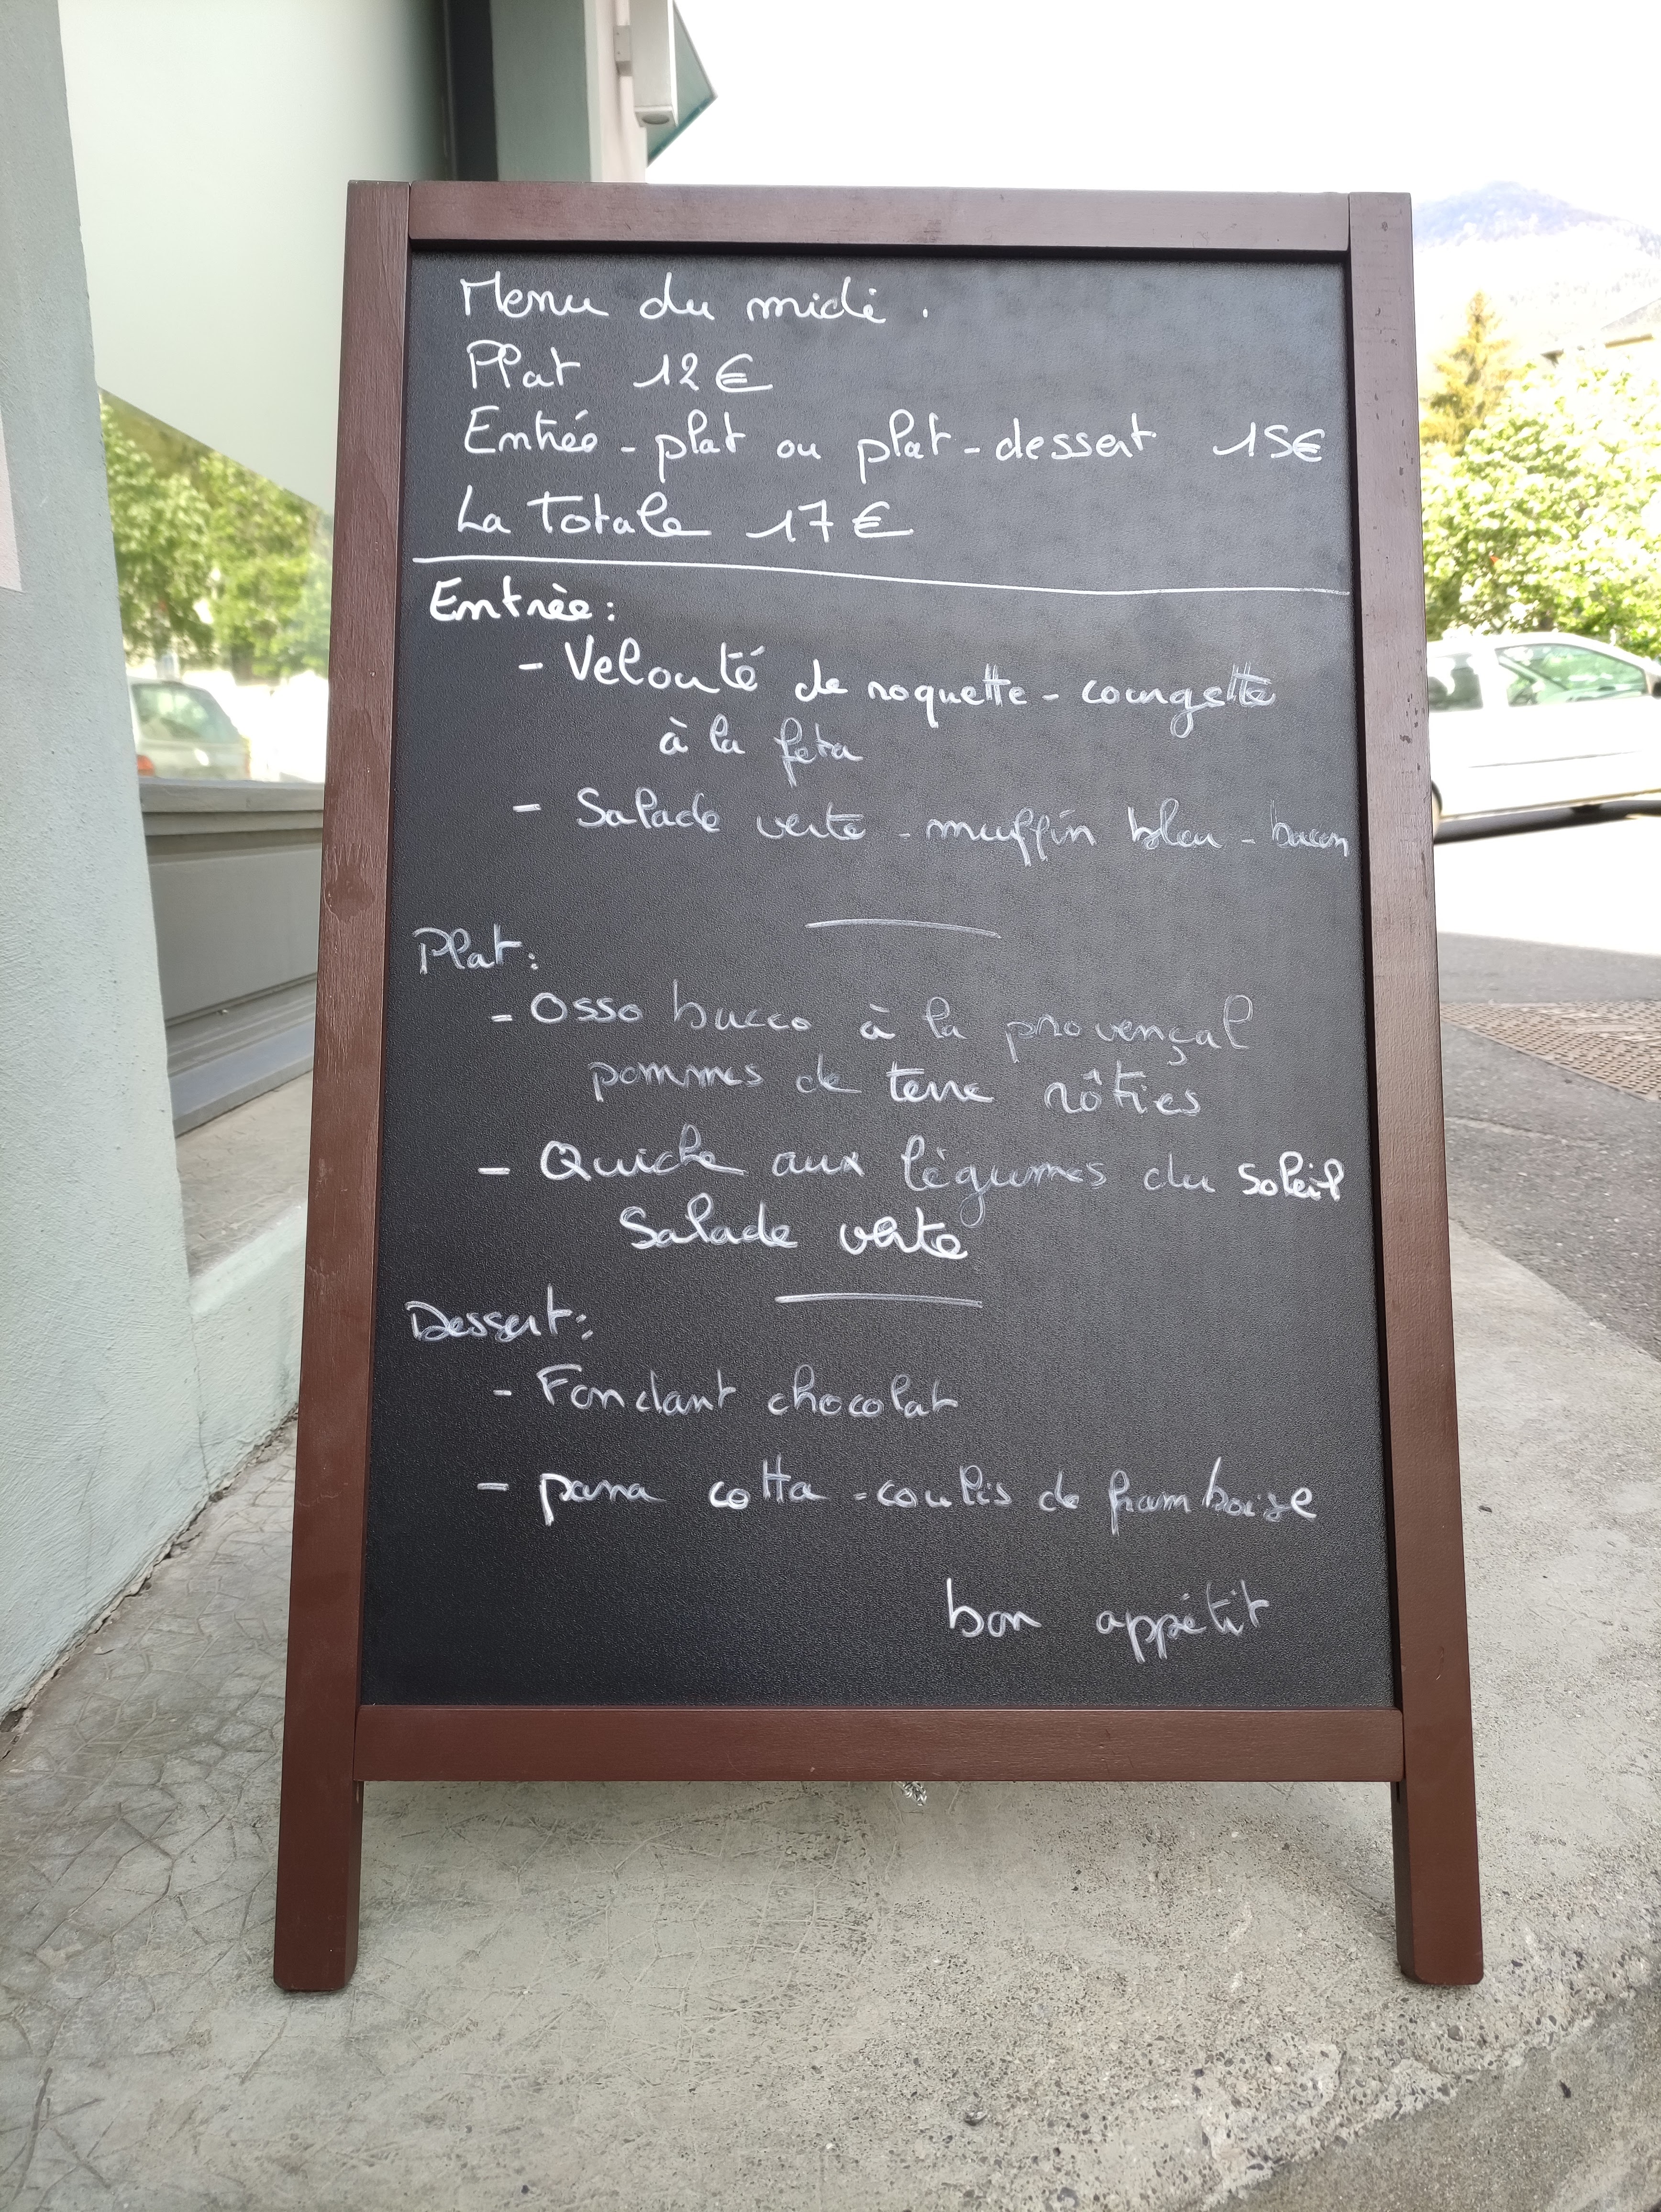 Menu du midi.
Plat 12€
Entrée - plat ou plat - dessert 15€
La Totale 17€
Entrèe:
- Velouté de roquette - courgette
à la feta
- Salade verte - muffin bleu - bacon
Plat:
- Osso bucco à la provençal
pommes de terre rôties
- Quiche aux légumes du soleil
Salade verte
Dessert:
- Fondant chocolat
- pana cotta - coulis de framboise
bon appétit